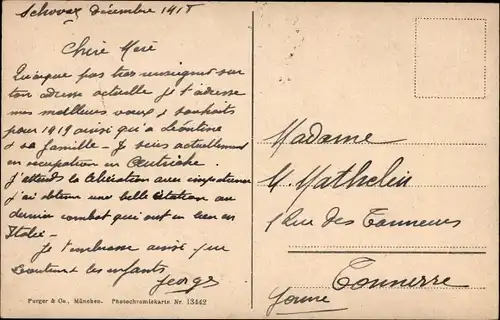 Schwaz décembre 1918
Chère Mère
Quoique pas très renseigné sur
ton adresse actuelle je t'adresse
mes meilleurs vœux & souhaits
pour 1919 ainsi qu'a Léontine
& sa famille - Je suis actuellement
en occupation en Autriche.
J'attends la libération avec impatience
j'ai obtenu une belle citation au
dernier combat qui ont eu lieu en
Italie -
Je t'embrasse ainsi que
& les enfants
George
Madame
M. Mathelin
1 Rue des Tanneurs
Tonnerre
Yonne
Purger & Co., München. Photochromiekarte Nr. 13442